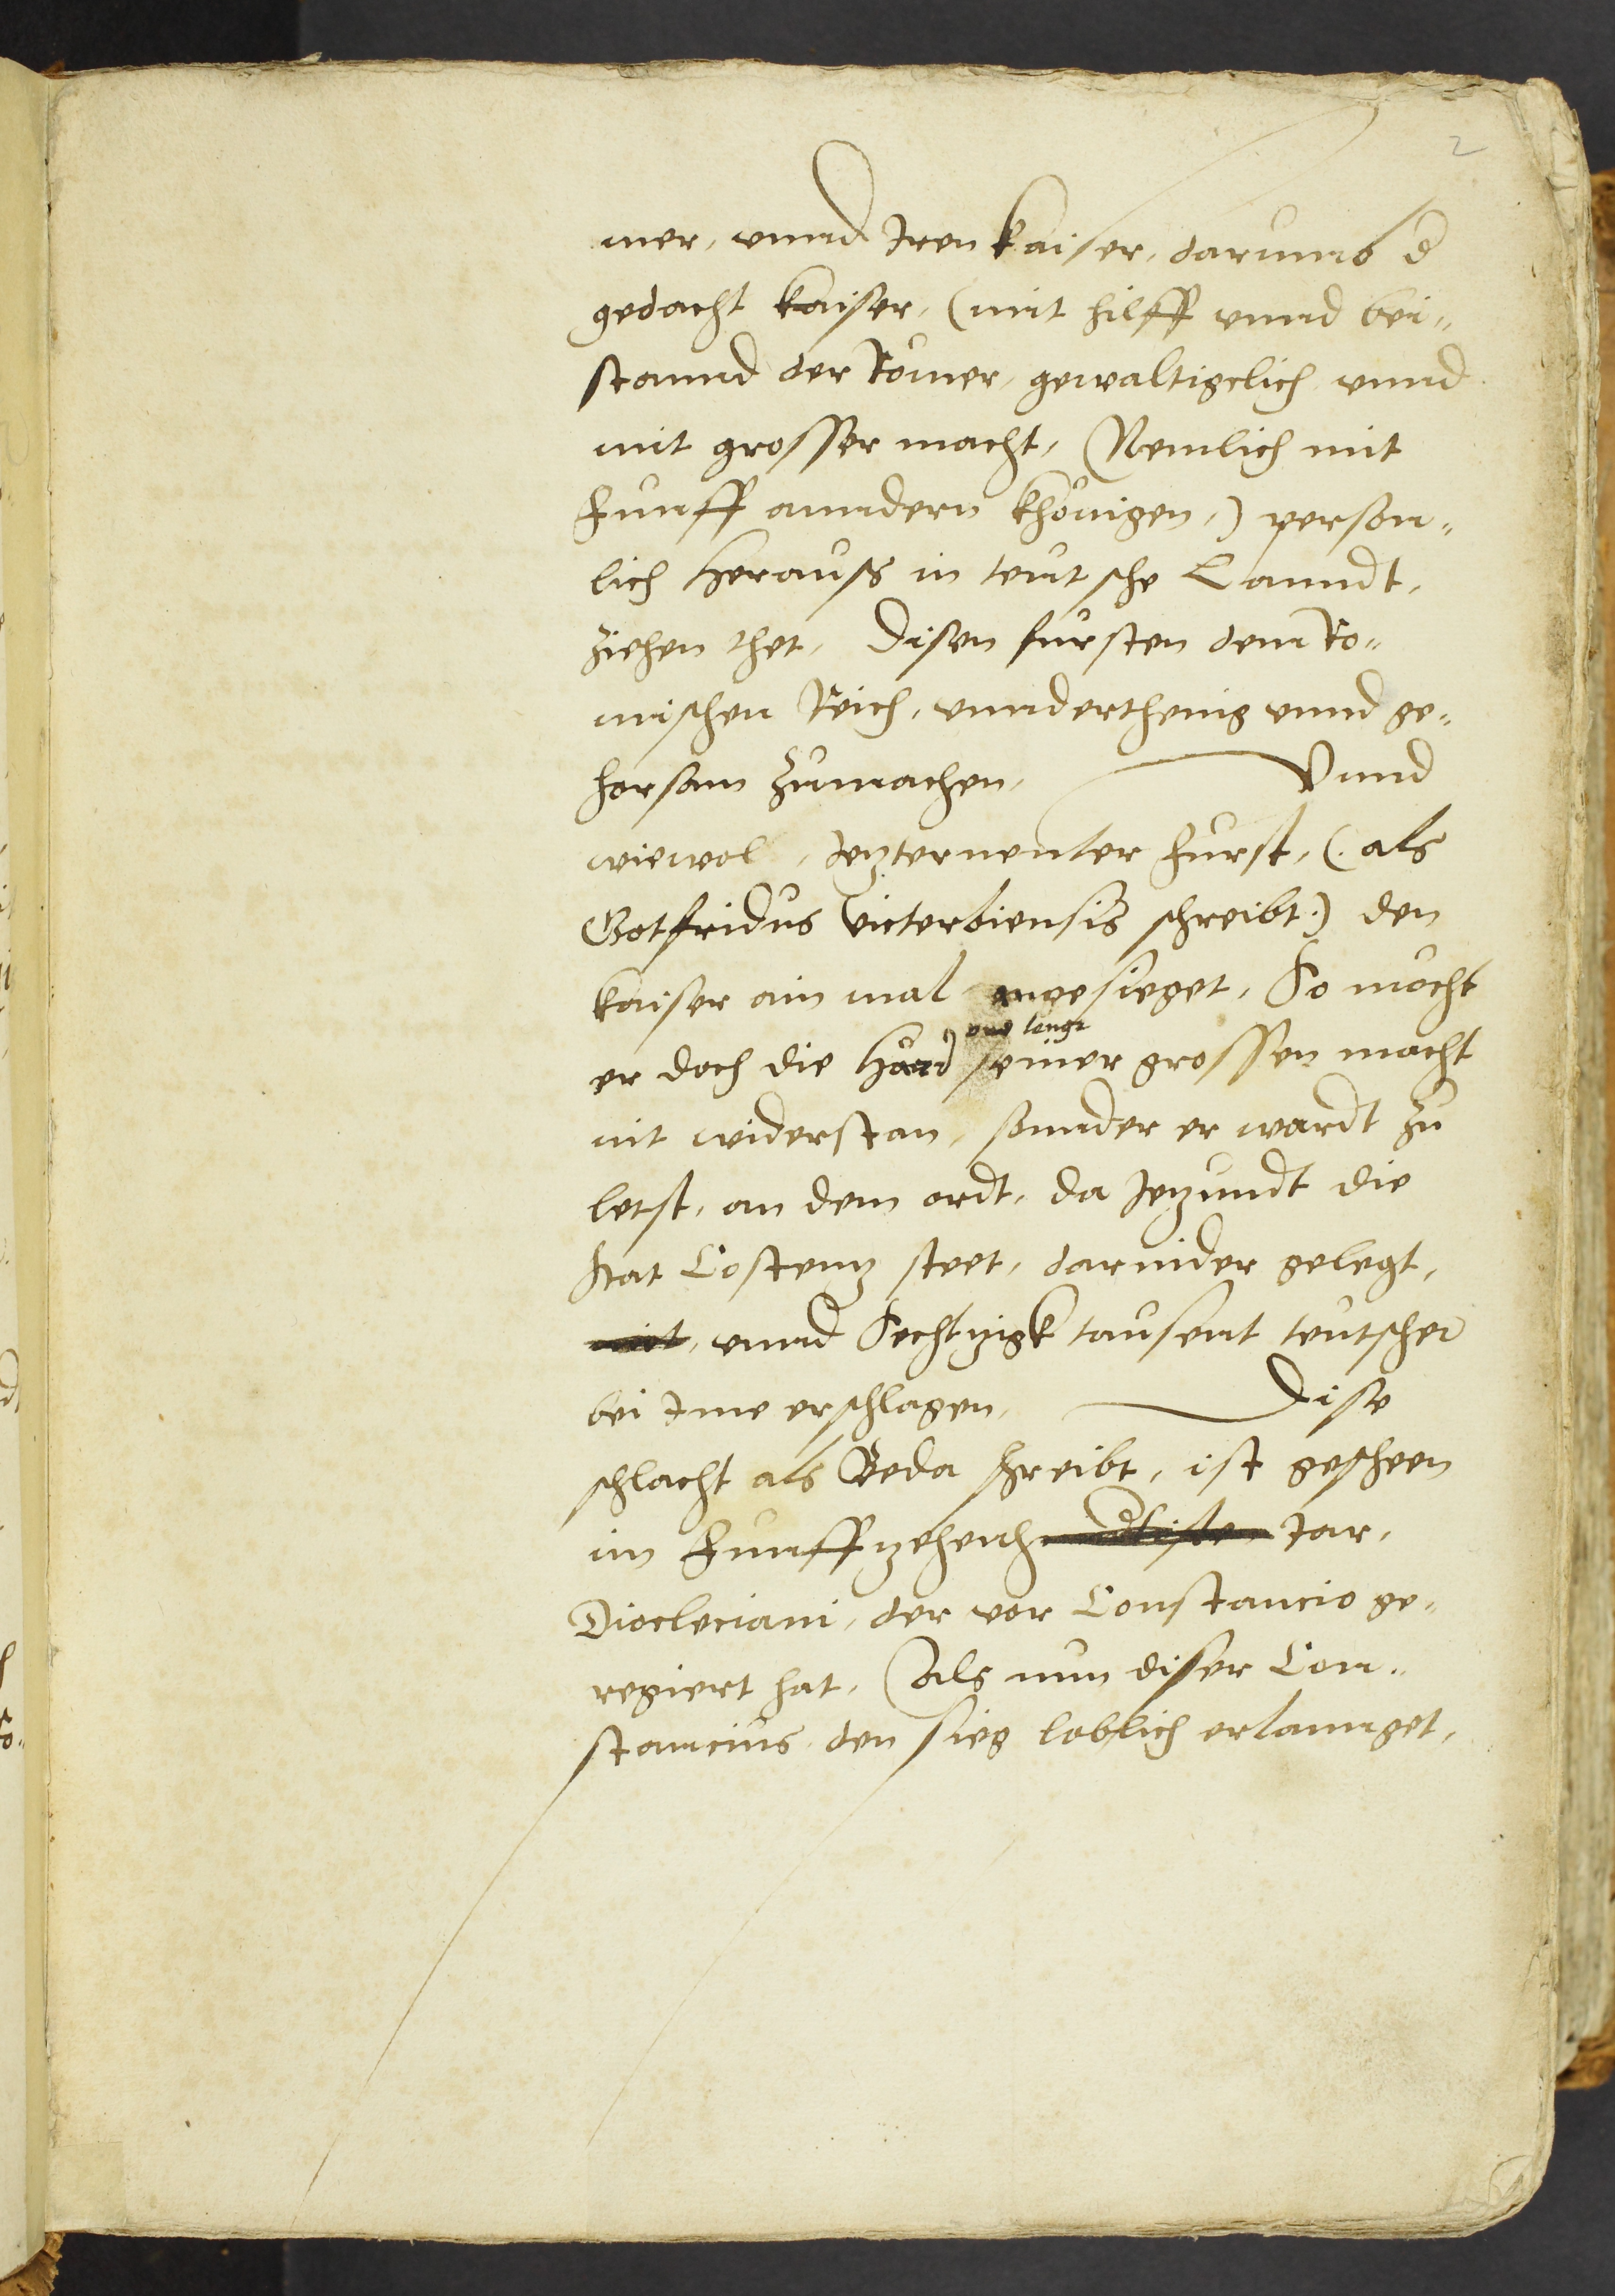 2
mer, vnnd Iren kaiser, darumb d
gedacht kaiser, (mit hilff vnnd bei„
stannd der Römer, gewaltigclich vnnd
mit grosser macht, (Nemlich mit
Funff anndern khönigen,) person„
lich herauss in teutsche Lanndt,
ziehen thet, Disen fursten dem Ro„
mischen Reich, vnnderthenig vnnd ge„
horsam zumachen, Vnnd
wiewol, Jezternenter Furst, (als
Gotfridus victerbiensis schreibt:) den
kaiser ain mal angesieget, So mocht
er doch die seiner grossen macht
lenge
nit widerstan, sonnder er wardt zu
letst, an dem ordt, da Jezundt die
stat Costenz steet, darnider gelegt,
mit, vnnd Sechtzigk tausent teutscher
bei Ime erschlagen, Dise
schlacht als Beda schreibt, ist gescheen
im Funffzehenh Jar,
Diocleciani, der vor Constancio ge„
regiert hat, Als nun diser Con„
stancius den sieg loblich erlannget,